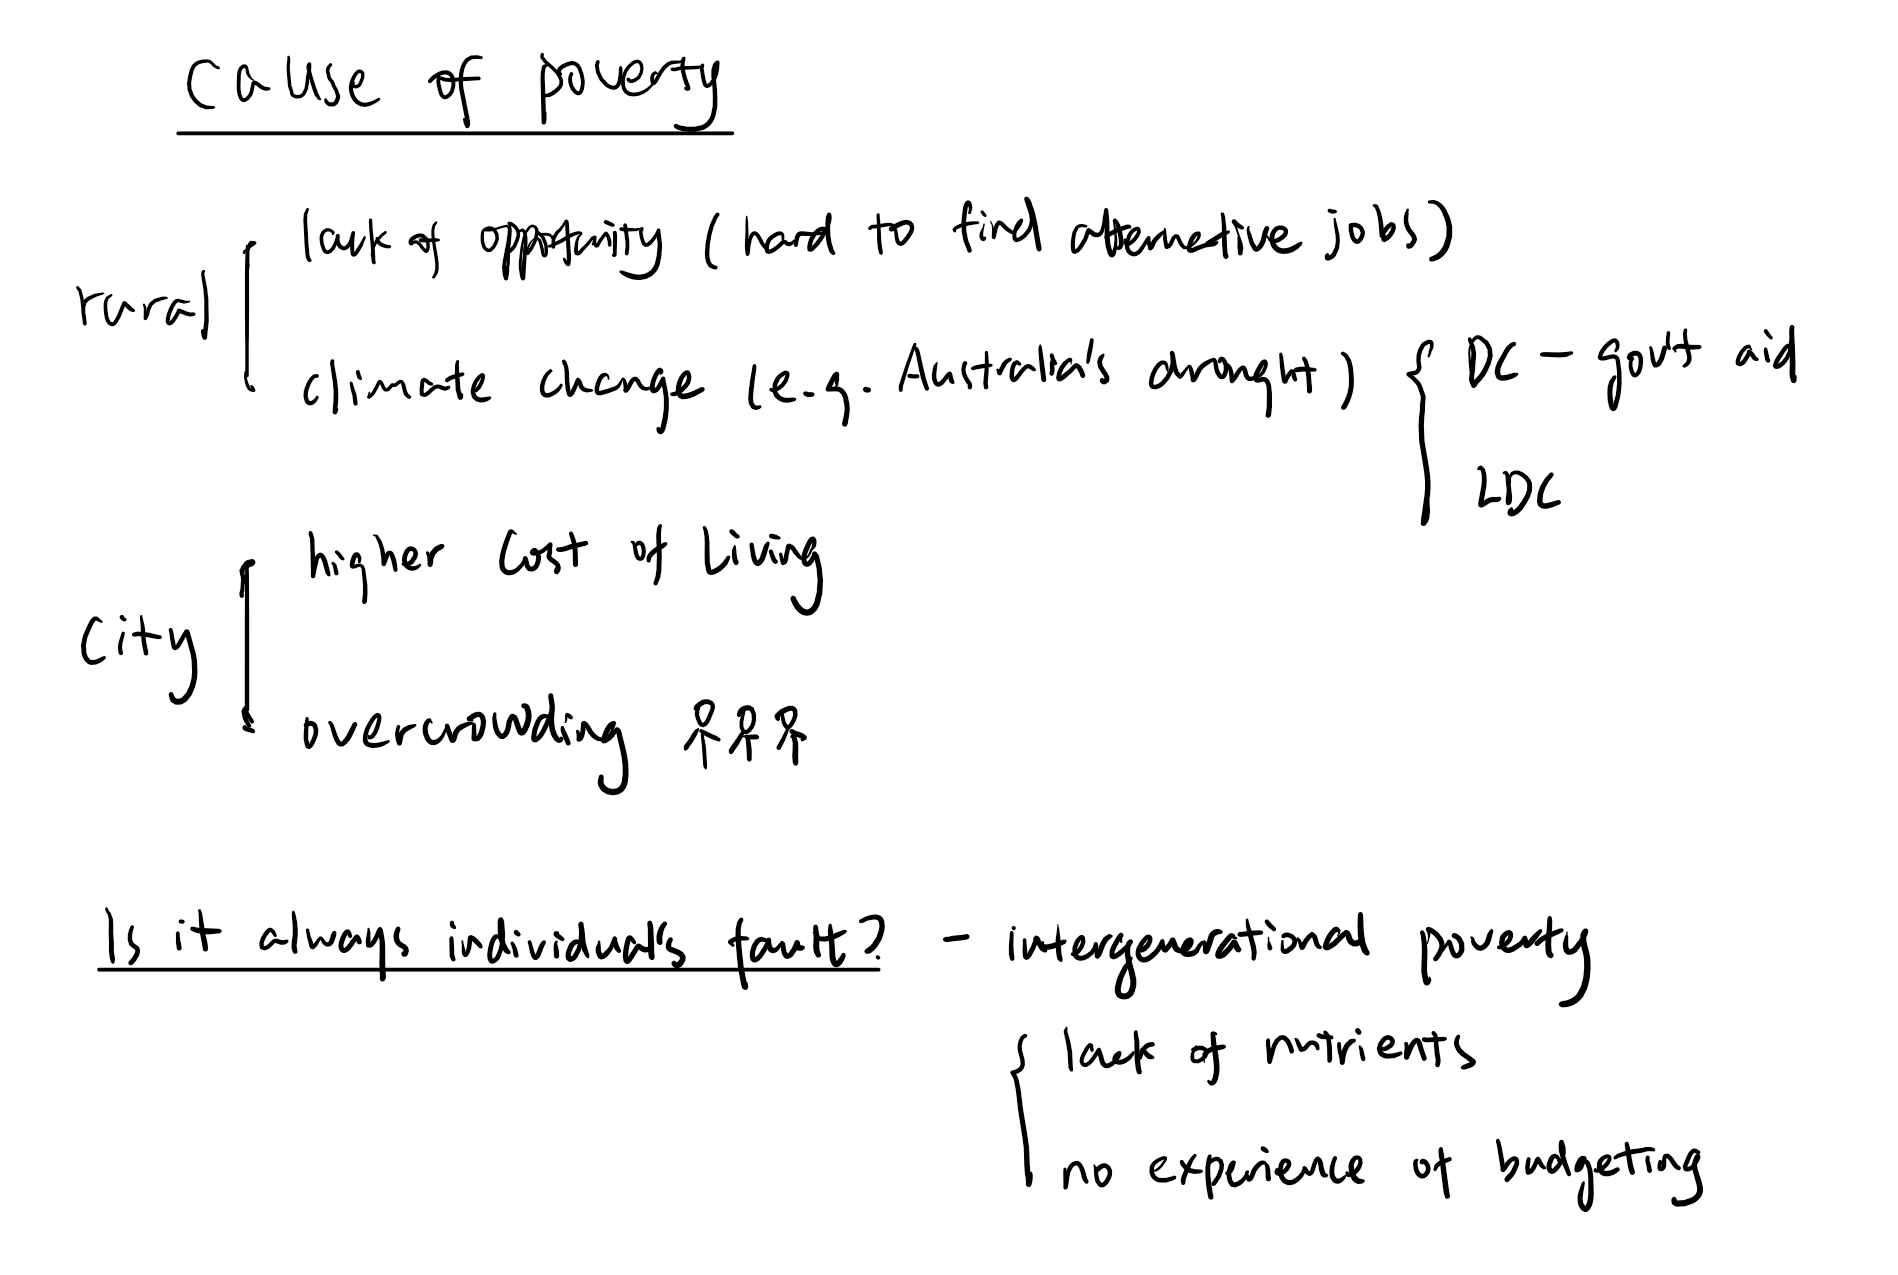 cause of poverty
lack of opportunity (hard to find alternative jobs)
rural
climate change (e.g. Australia's drought)
DC - gov't aid
LDC
higher Cost of Living
city
overcrowding
Is it always individual's fault? - intergenerational poverty
lack of nutrients
no experience of budgeting